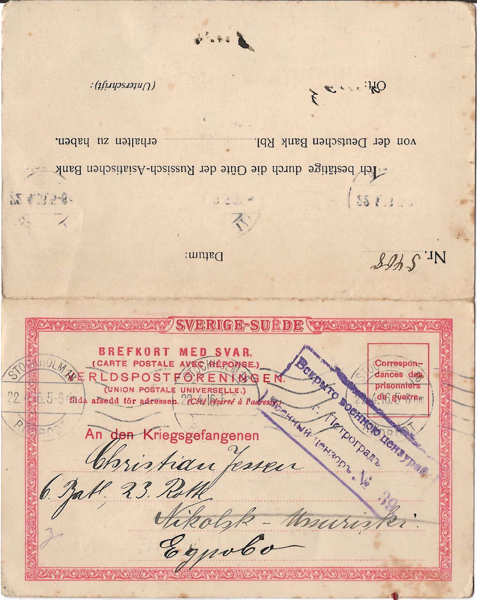 Nr. 5468 Datum:
Ich bestätige durch die Güte der Russisch-Asiatischen Bank
von der Deutschen Bank Rbl. erhalten zu haben.
Ort: (Unterschrift):
SVERIGE-SUÈDE
BREFKORT MED SVAR.
(CARTE POSTALE AVEC RÉPONSE)
VERLDSPOSTFÖRENINGEN.
(UNION POSTALE UNIVERSELLE.)
Sida afsedd för adressen. (Côté réservé à l'adresse.)
Correspon-
dances des
prisonniers
de guerre.
STOCKHOLM
22.4.16.5-6
Вскрыто военною цензурою
г. Петроградъ
Военный цензоръ №
An den Kriegsgefangenen
Christian Jessen
6. Batl, 23. Rotte
Nikolsk-Ussuriski.